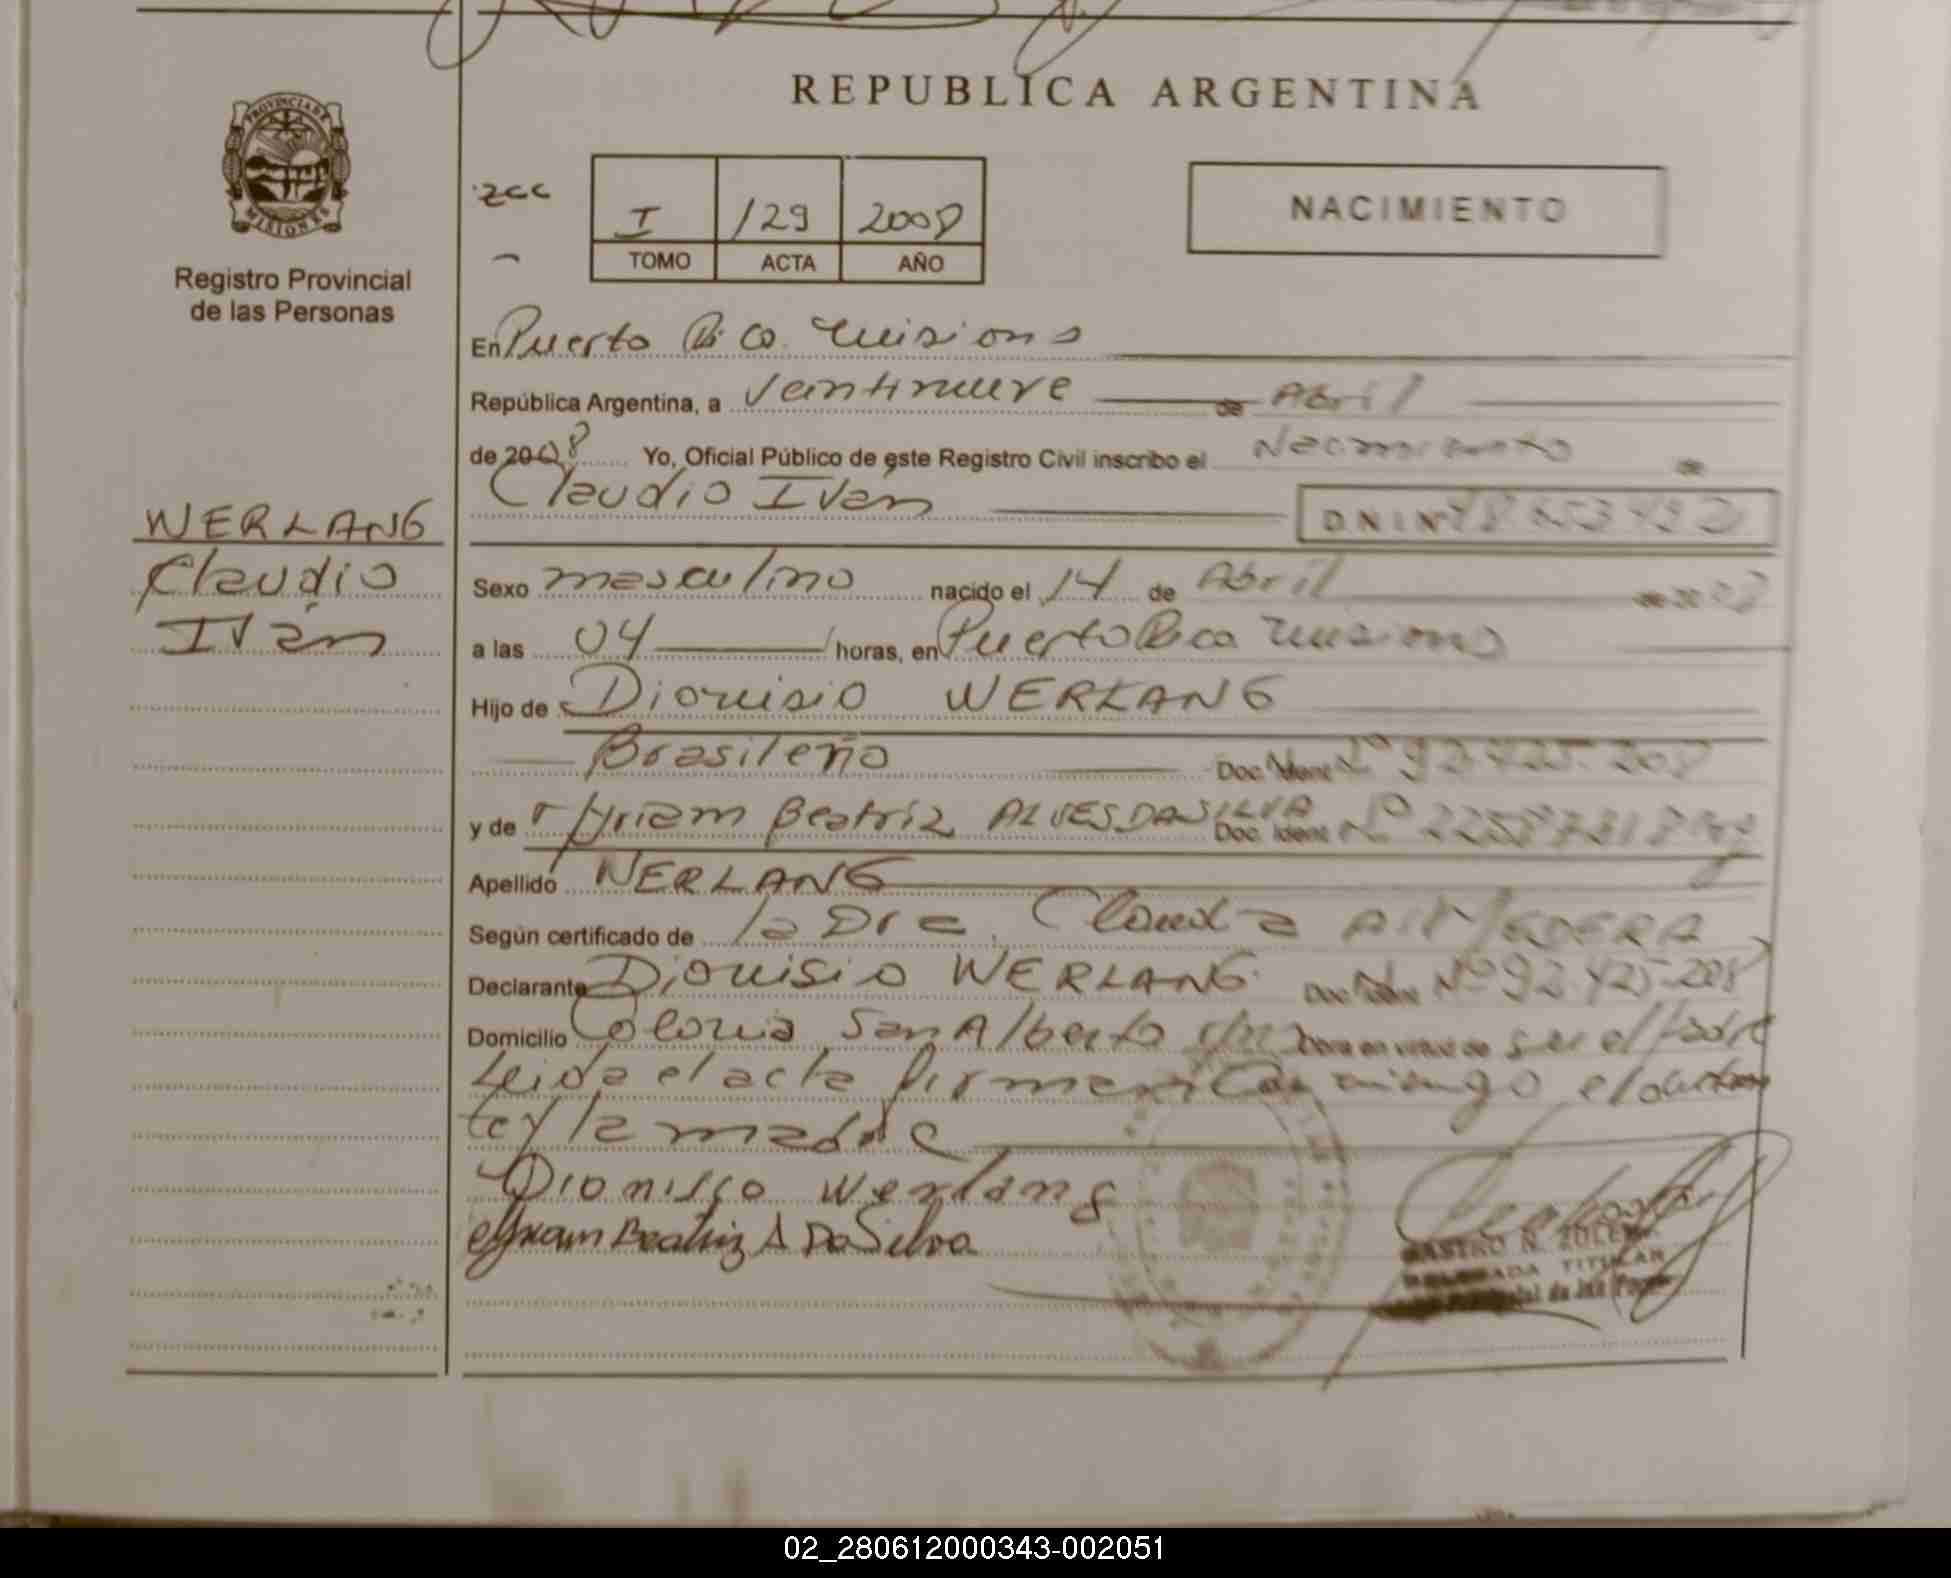 REPUBLICA ARGENTINA
PROVINCIA DE
MISIONES
Registro Provincial
de las Personas
zcc
I 129 2008
TOMO ACTA AÑO
NACIMIENTO
En Puerto Rico Misiones
República Argentina, a Veintinueve de Abril
de 2008 Yo, Oficial Público de este Registro Civil inscribo el Nacimiento de
Claudio Iván D N I Nº
WERLANG
Claudio
Iván
Sexo masculino nacido el 14 de Abril
a las 04 horas, en Puerto Rico Misiones
Hijo de Dionisio WERLANG
Brasileño Doc Ident Nº 92.425.208
y de Myriam Beatriz ALVES DA SILVA Doc Ident Nº
Apellido WERLANG
Según certificado de la Dra. Claudia
Declarante Dionisio WERLANG Doc Ident Nº 92.425.208
Domicilio Colonia San Alberto obra en virtud de ser el padre
Leida el acta firman conmigo el declaran
te y la madre
Dionisio Werlang
Myriam Beatriz A Da Silva
CASTRO N.
DELEGADA TITULAR
02_280612000343-002051